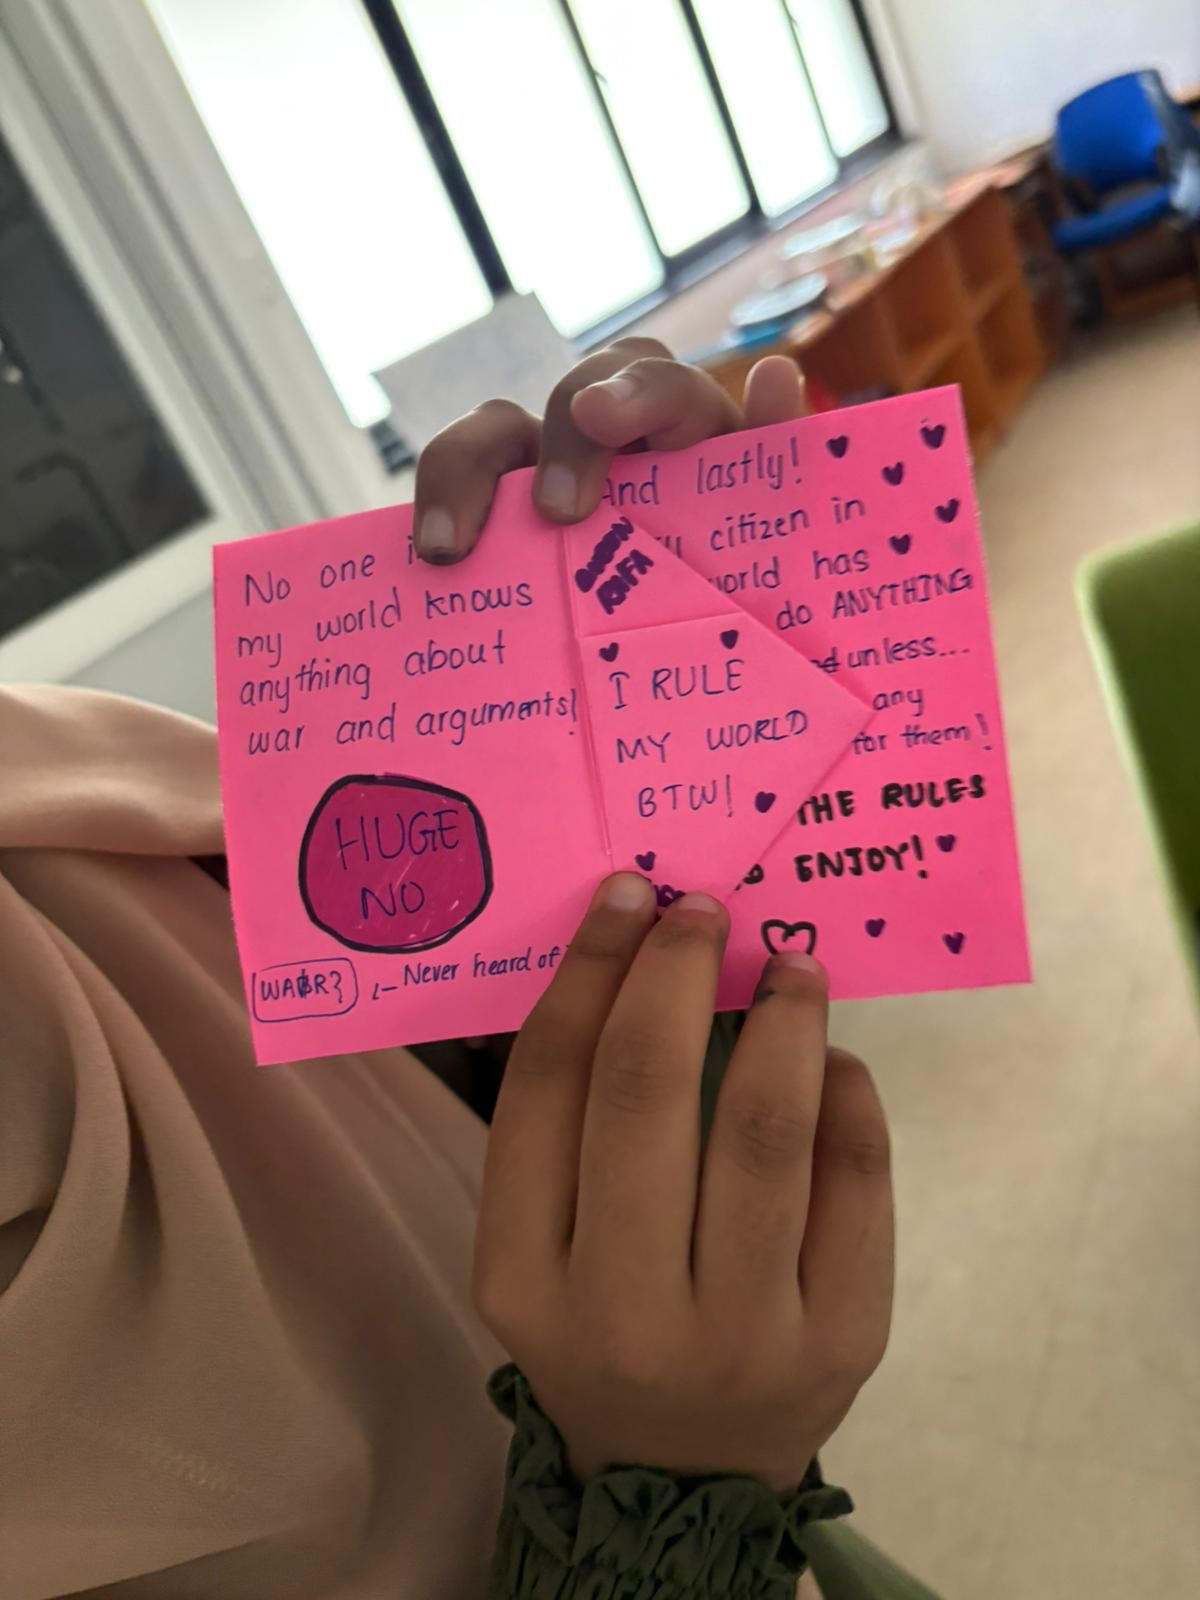 No one
my world knows
anything about
war and arguments!
HUGE
NO
WAR?
Never heard of
QUEEN
I RULE
MY WORLD
BTW!
And lastly!
citizen in
world has
do ANYTHING
unless...
any
for them!
THE RULES
ENJOY!